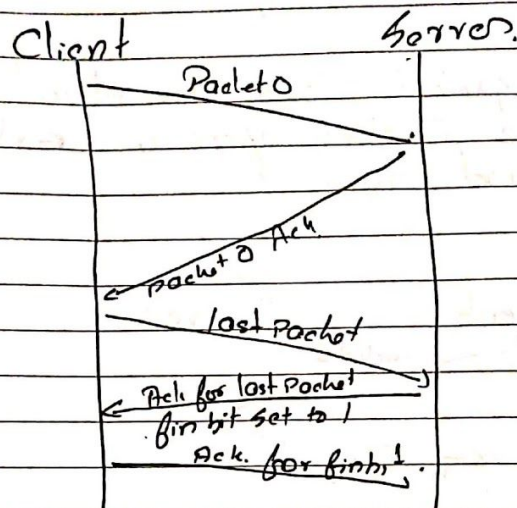 Client Server.
Packet 0
Packet 0 Ack.
last Packet
Ack for last Packet
fin bit set to 1
Ack. for finbit 1.